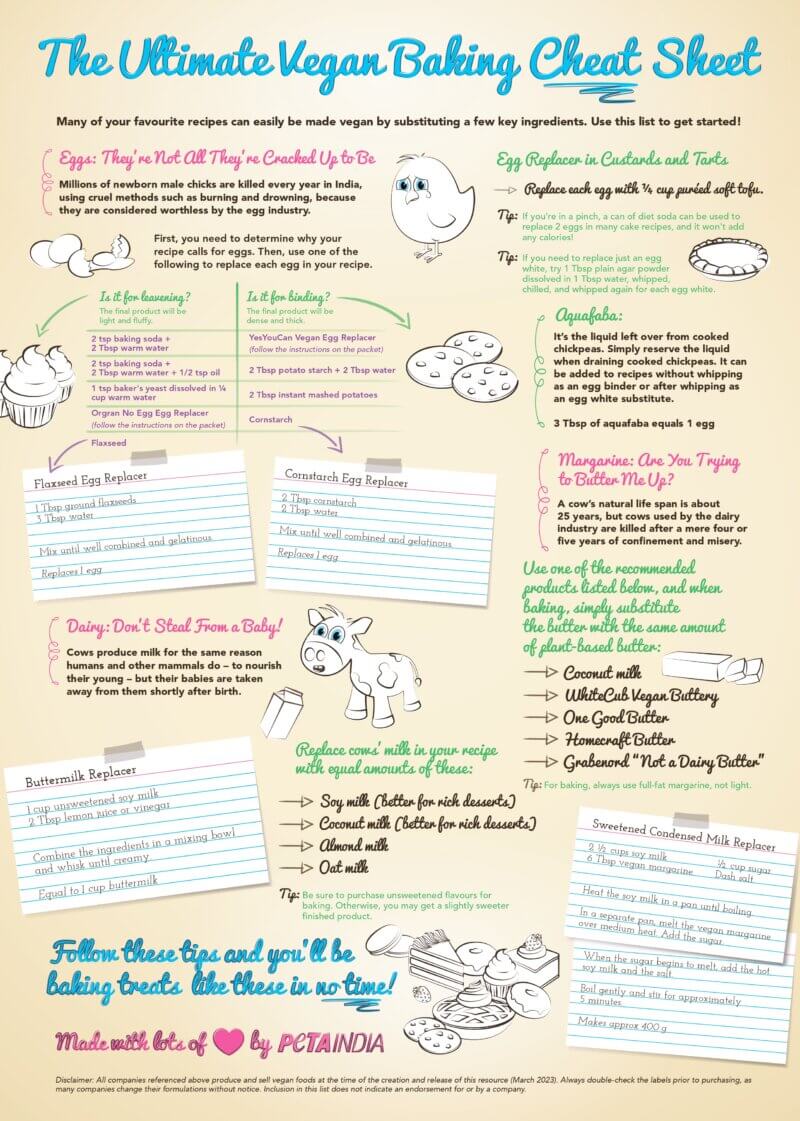 The Ultimate Vegan Baking Cheat Sheet
Many of your favourite recipes can easily be made vegan by substituting a few key ingredients. Use this list to get started!
Eggs: They're Not All They're Cracked Up to Be
Millions of newborn male chicks are killed every year in India,
using cruel methods such as burning and drowning, because
they are considered worthless by the egg industry.
First, you need to determine why your
recipe calls for eggs. Then, use one of the
following to replace each egg in your recipe.
Is it for leavening?
The final product will be
light and fluffy.
2 tsp baking soda +
2 Tbsp warm water
2 tsp baking soda +
2 Tbsp warm water + 1/2 tsp oil
1 tsp baker's yeast dissolved in ¼
cup warm water
Orgran No Egg Egg Replacer
(follow the instructions on the packet)
Flaxseed
Is it for binding?
The final product will be
dense and thick.
YesYouCan Vegan Egg Replacer
(follow the instructions on the packet)
2 Tbsp potato starch + 2 Tbsp water
2 Tbsp instant mashed potatoes
Cornstarch
Egg Replacer in Custards and Tarts
Replace each egg with ¼ cup puréed soft tofu.
Tip: If you're in a pinch, a can of diet soda can be used to
replace 2 eggs in many cake recipes, and it won't add
any calories!
Tip: If you need to replace just an egg
white, try 1 Tbsp plain agar powder
dissolved in 1 Tbsp water, whipped,
chilled, and whipped again for each egg white.
Aquafaba:
It's the liquid left over from cooked
chickpeas. Simply reserve the liquid
when draining cooked chickpeas. It can
be added to recipes without whipping
as an egg binder or after whipping as
an egg white substitute.
3 Tbsp of aquafaba equals 1 egg
Flaxseed Egg Replacer
1 Tbsp ground flaxseeds
3 Tbsp water
Mix until well combined and gelatinous
Replaces 1 egg
Cornstarch Egg Replacer
2 Tbsp cornstarch
2 Tbsp water
Mix until well combined and gelatinous
Replaces 1 egg
Margarine: Are You Trying
to Butter Me Up?
A cow's natural life span is about
25 years, but cows used by the dairy
industry are killed after a mere four or
five years of confinement and misery.
Use one of the recommended
products listed below, and when
baking, simply substitute
the butter with the same amount
of plant-based butter:
Coconut milk
WhiteCub Vegan Buttery
One Good Butter
Homecraft Butter
Grabenord "Not a Dairy Butter"
Tip: For baking, always use full-fat margarine, not light.
Dairy: Don't Steal From a Baby!
Cows produce milk for the same reason
humans and other mammals do – to nourish
their young – but their babies are taken
away from them shortly after birth.
Buttermilk Replacer
1 cup unsweetened soy milk
2 Tbsp lemon juice or vinegar
Combine the ingredients in a mixing bowl
and whisk until creamy.
Equal to 1 cup buttermilk
Replace cows' milk in your recipe
with equal amounts of these:
Soy milk (better for rich desserts)
Coconut milk (better for rich desserts)
Almond milk
Oat milk
Tip: Be sure to purchase unsweetened flavours for
baking. Otherwise, you may get a slightly sweeter
finished product.
Sweetened Condensed Milk Replacer
2 ½ cups soy milk ½ cup sugar
6 Tbsp vegan margarine Dash salt
Heat the soy milk in a pan until boiling.
In a separate pan, melt the vegan margarine
over medium heat. Add the sugar.
When the sugar begins to melt, add the hot
soy milk and the salt.
Boil gently and stir for approximately
5 minutes.
Makes approx 400 g
Follow these tips and you'll be
baking treats like these in no time!
Made with lots of by PETA INDIA
Disclaimer: All companies referenced above produce and sell vegan foods at the time of the creation and release of this resource (March 2023). Always double-check the labels prior to purchasing, as
many companies change their formulations without notice. Inclusion in this list does not indicate an endorsement for or by a company.